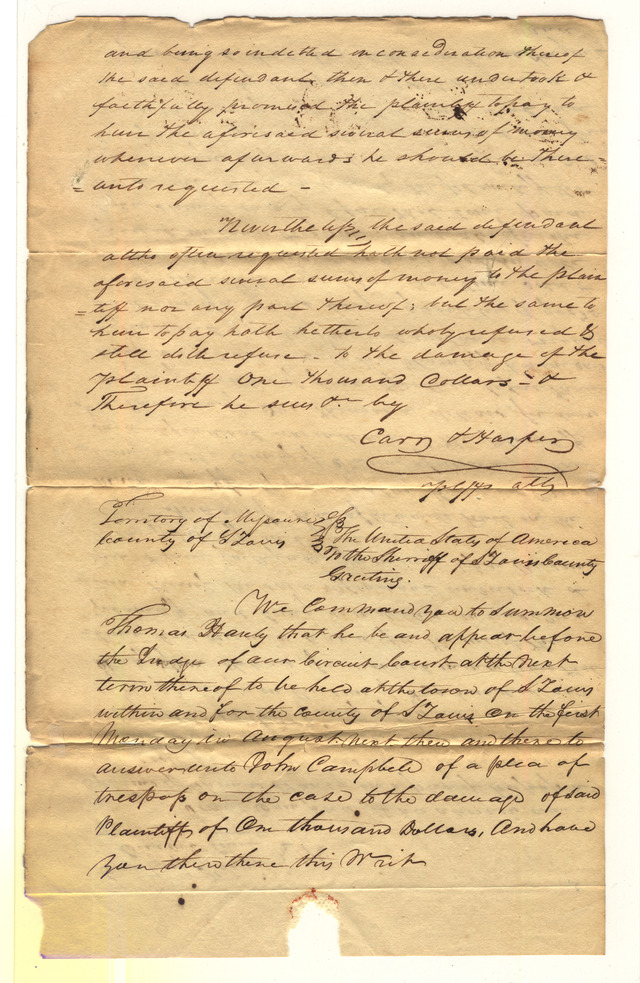 and being so indebted in consideration thereof
the said defendant then & there undertook &
faithfully promised the plaintiff to pay to
him the aforesaid several sums of money
whenever afterwards he should be there =
= unto requested –
Nevertheless, the said defendant
altho often requested hath not paid the
aforesaid several sums of money to the plain
= tiff nor any part thereof; but the same to
him to pay hath hetherto wholy refused &
still doth refuse – to the damage of the
plaintiff One thousand Dollars – &
Therefore he sues &c by
Carr & Harper
plffs atts
Territory of Missouri
County of St Louis
The United States of America
To the Sherriff of St Louis County
Greeting.
We Command you to Summon
Thomas Hanly that he be and appear before
the Judge of our Circuit Court at the next
term thereof to be held at the town of St Louis
within and for the County of St Louis on the first
Monday in August next then and there to
answer unto John Campbell of a plea of
trespass on the case to the damage of said
Plaintiff of One thousand Dollars, And have
you then there this Writ